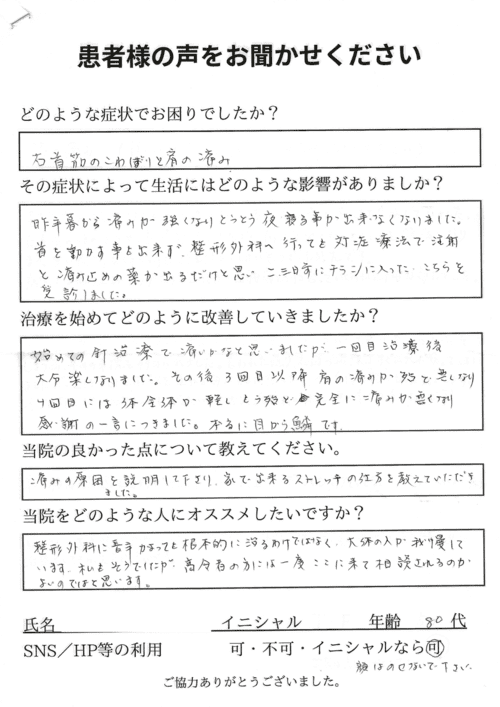 患者様の声をお聞かせください
どのような症状でお困りでしたか？
右首筋のこわばりと肩の痛み
その症状によって生活にはどのような影響がありますか？
昨年暮から痛みが強くなりとうとう夜寝る事が出来なくなりました。
首を動かす事も出来ず、整形外科へ行っても対症療法で注射
と痛み止めの薬が出るだけと思い 二三日前にチラシに入った こちらを
受診しました。
治療を始めてどのように改善していきましたか？
始めての針治療で痛いかなと思いましたが、一回目治療後
大分楽になりました。その後3回目以降肩の痛みが殆ど無くなり
4回目には体全体が軽く とう 殆ど 完全に痛みが無くなり
感謝の一言につきました。本当に目から鱗です。
当院の良かった点について教えてください。
痛みの原因を説明して下さり、家で出来るストレッチの仕方を教えていただき
ました。
当院をどのような人にオススメしたいですか？
整形外科に 何かよっても根本的に治るわけではなく、大体の人が我慢して
います。私もそうでしたが、高令者の方には一度ここに来て相談されるのが
よいのではと思います。
氏名 イニシャル 年齢 80 代
SNS／HP等の利用 可・不可・イニシャルなら可
顔はのせないで下さい
ご協力ありがとうございました。